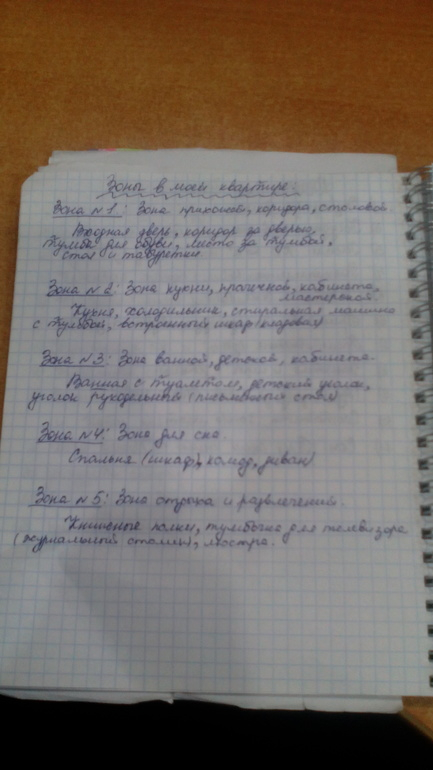 Зоны в моей квартире:
Зона №1: Зона прихожей, коридора, столовой.
Входная дверь, коридор за дверью,
тумба для обуви, место за тумбой,
стол и табуретки
Зона №2: Зона кухни, прачечной, кабинета,
мастерской.
Кухня, холодильник, стиральная машина
с тумбой, встроенный шкаф (кладовая)
Зона №3: Зона ванной, детской, кабинета.
Ванная с туалетом, детский уголок,
уголок рукодельный (письменный стол)
Зона №4: Зона для сна.
Спальня (шкаф), комод, диван)
Зона №5: Зона отдыха и развлечений.
Книжные полки, тумбочка для телевизора
(журнальный столик), люстра.